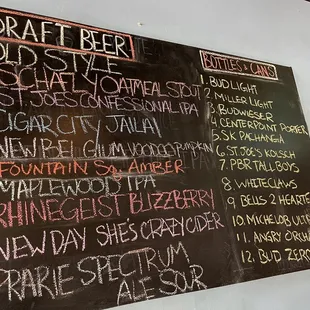 DRAFT BEER
OLD STYLE
SCHAFLY OATMEAL STOUT
ST. JOES CONFESSIONAL IPA
CIGAR CITY JAILAI
NEW BELGIUM VOODOO PUMPKIN
FOUNTAIN SQ. AMBER
MAPLEWOOD IPA
RHINEGEIST BLIZZBERRY
NEW DAY SHE'S CRAZY CIDER
PRARIE SPECTRUM
ALE SOUR
BOTTLES & CANS
1. BUD LIGHT
2. MILLER LIGHT
3. BUDWEISER
4. CENTERPOINT PORTER
5. SK PACHANGA
6. ST. JOES KOLSCH
7. PBR TALL BOYS
8 WHITECLAWS
9 BELLS 2 HEARTE
10. MICHELOB ULTR
11. ANGRY ORCH
12. BUD ZERO